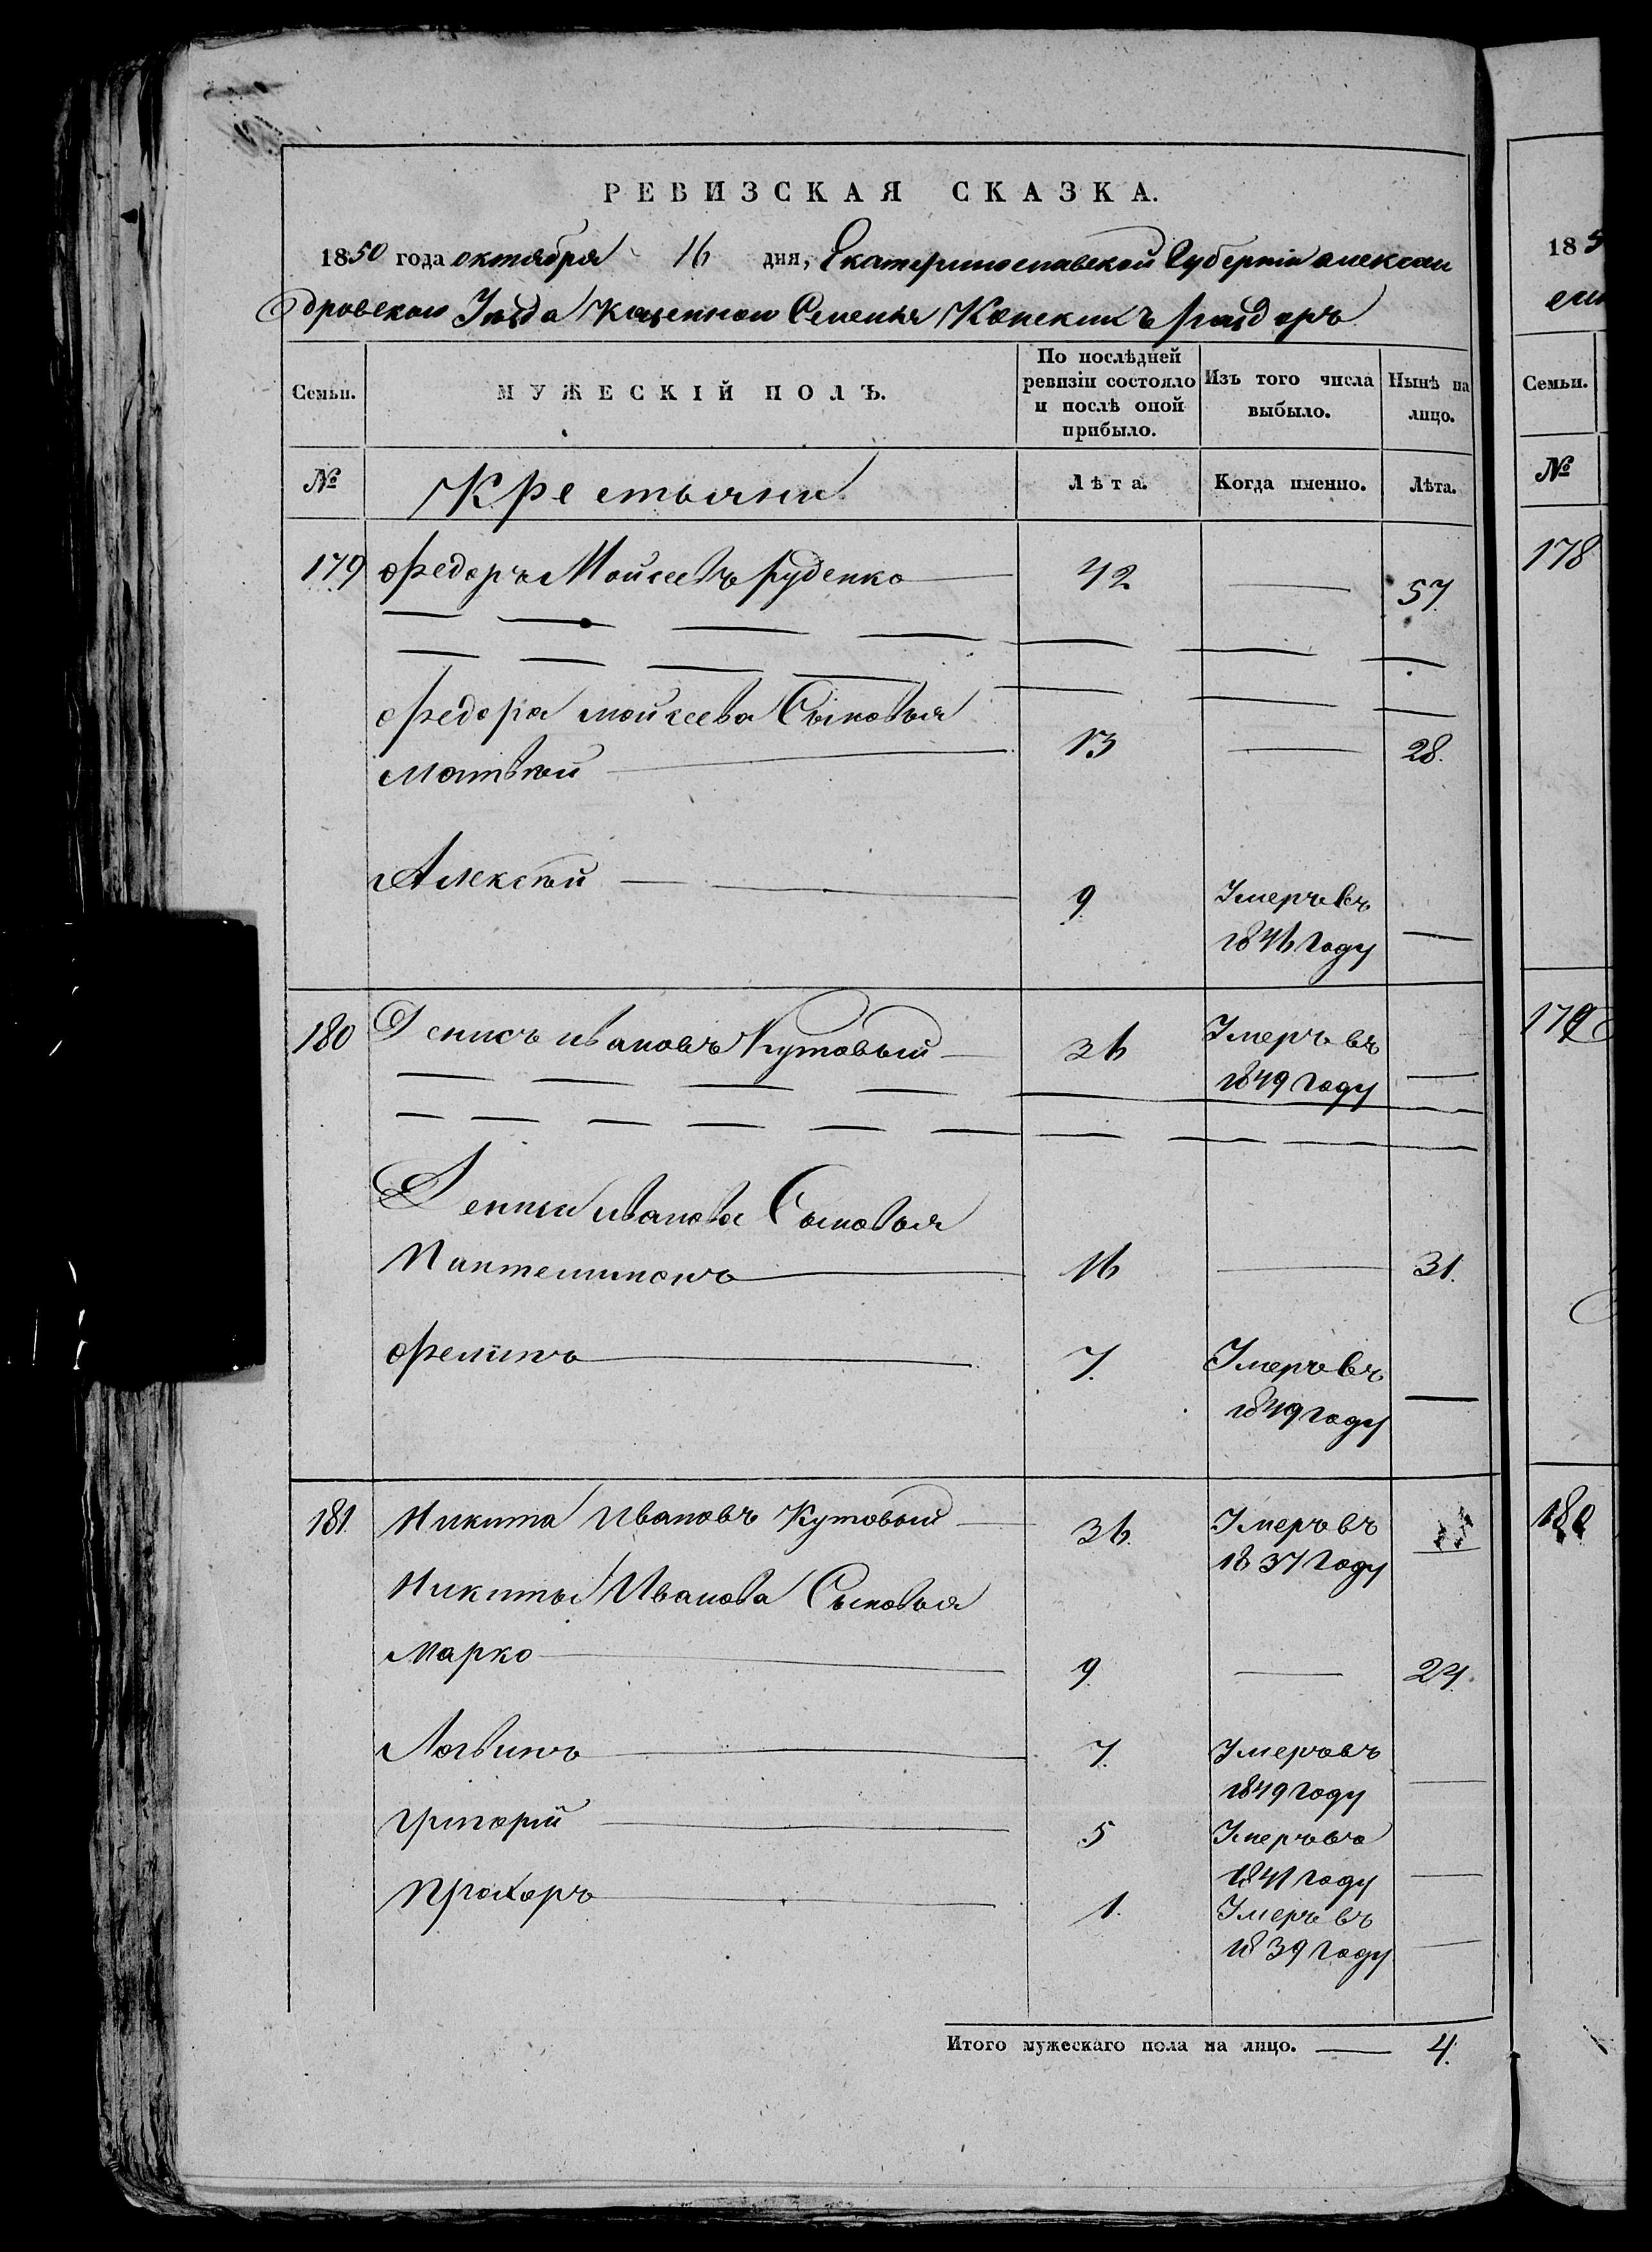 РЕВИЗСКАЯ СКАЗКА.
1850 года октября 16 дня, Екатеринославской Губерніи алексан
дровскаго Уѣзда казеннаго Селенія Конскихъ раздоръ
Семьи. МУЖЕСКІЙ ПОЛЪ. По послѣдней ревизіи состояло и послѣ оной прибыло. Изъ того числа выбыло. Нынѣ на лицо.
№ Крестьяни Лѣта. Когда именно. Лѣта.
179 Федоръ Моисеевъ Руденко 42 57
Федора моисеева Сыновья
Матвѣй 13 28.
Алексѣй 9 Умеръ въ
1846 Году
180 Денисъ ивановъ Кутовый 36 Умеръ въ
1849 Году
Дениса иванова Сыновья
Пантелимонъ 16 31.
Филипъ 7. Умеръ въ
1849 году
181. Никита Ивановъ Кутовый 36 Умеръ въ
1837 Году
Никиты Иванова Сыновья
Марко 9 24.
Логвинъ 7. Умеръ въ
1849 году
Григорій 5 Умеръ въ
1841 году
Прохоръ 1. Умеръ въ
1839 Году
Итого мужескаго пола на лицо. 4.
185
Семьи.
№
178
179
180